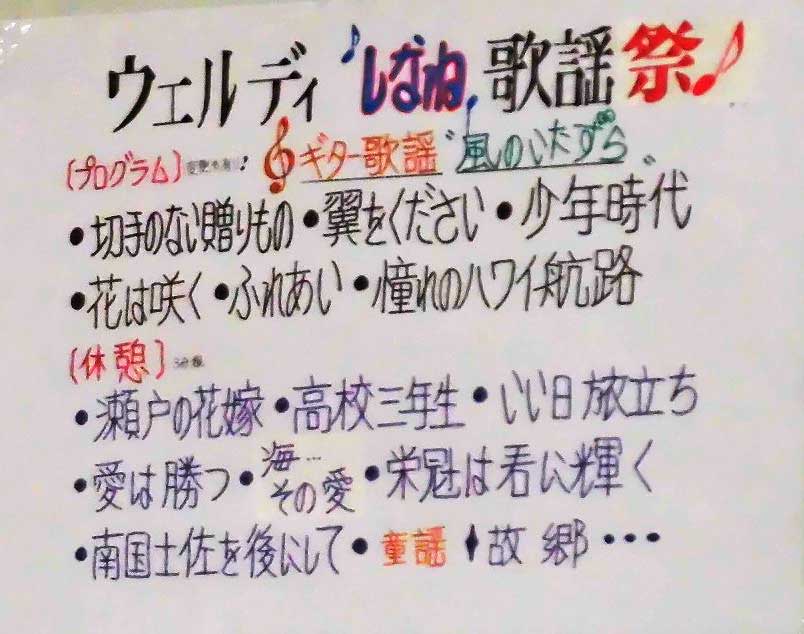 ウェルディ♪しなね♪歌謡祭♪
〔プログラム〕変更も有り! ギター歌謡〝風のいたずら〟
・切手のない贈りもの・翼をください・少年時代
・花は咲く・ふれあい・憧れのハワイ航路
〔休憩〕
・瀬戸の花嫁・高校三年生・いい日旅立ち
・愛は勝つ・海…その愛・栄冠は君に輝く
・南国土佐を後にして・童謡♦故郷・・・